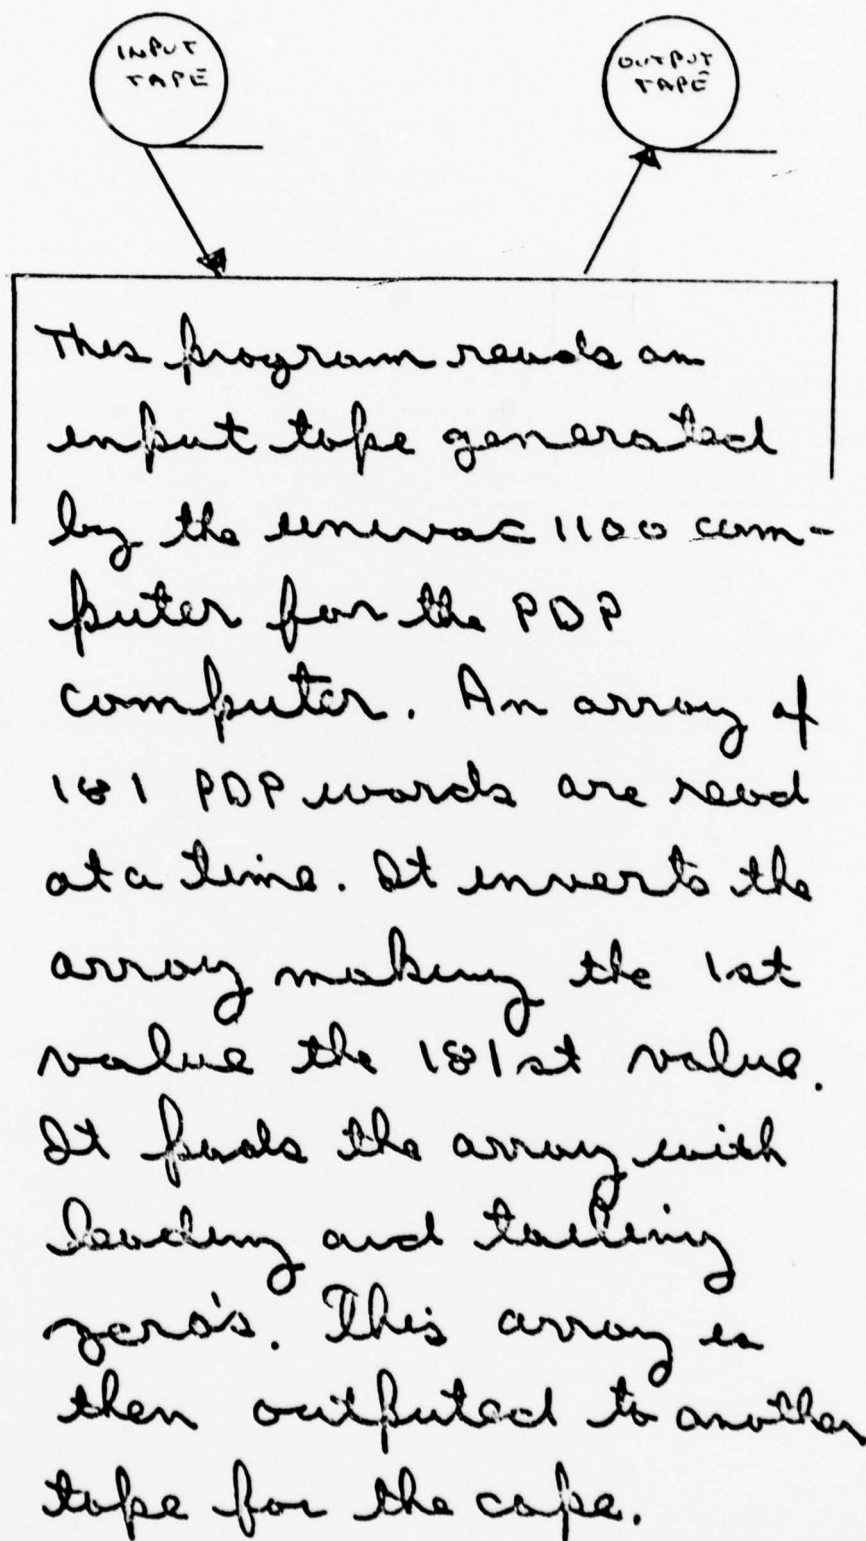 INPUT
TAPE
OUTPUT
TAPE
This program reads an
input tape generated
by the univac 1100 com-
puter for the PDP
computer. An array of
181 PDP words are read
at a time. It inverts the
array making the 1st
value the 181st value.
It pads the array with
leading and tailing
zero's. This array is
then outputed to another
tape for the cape.